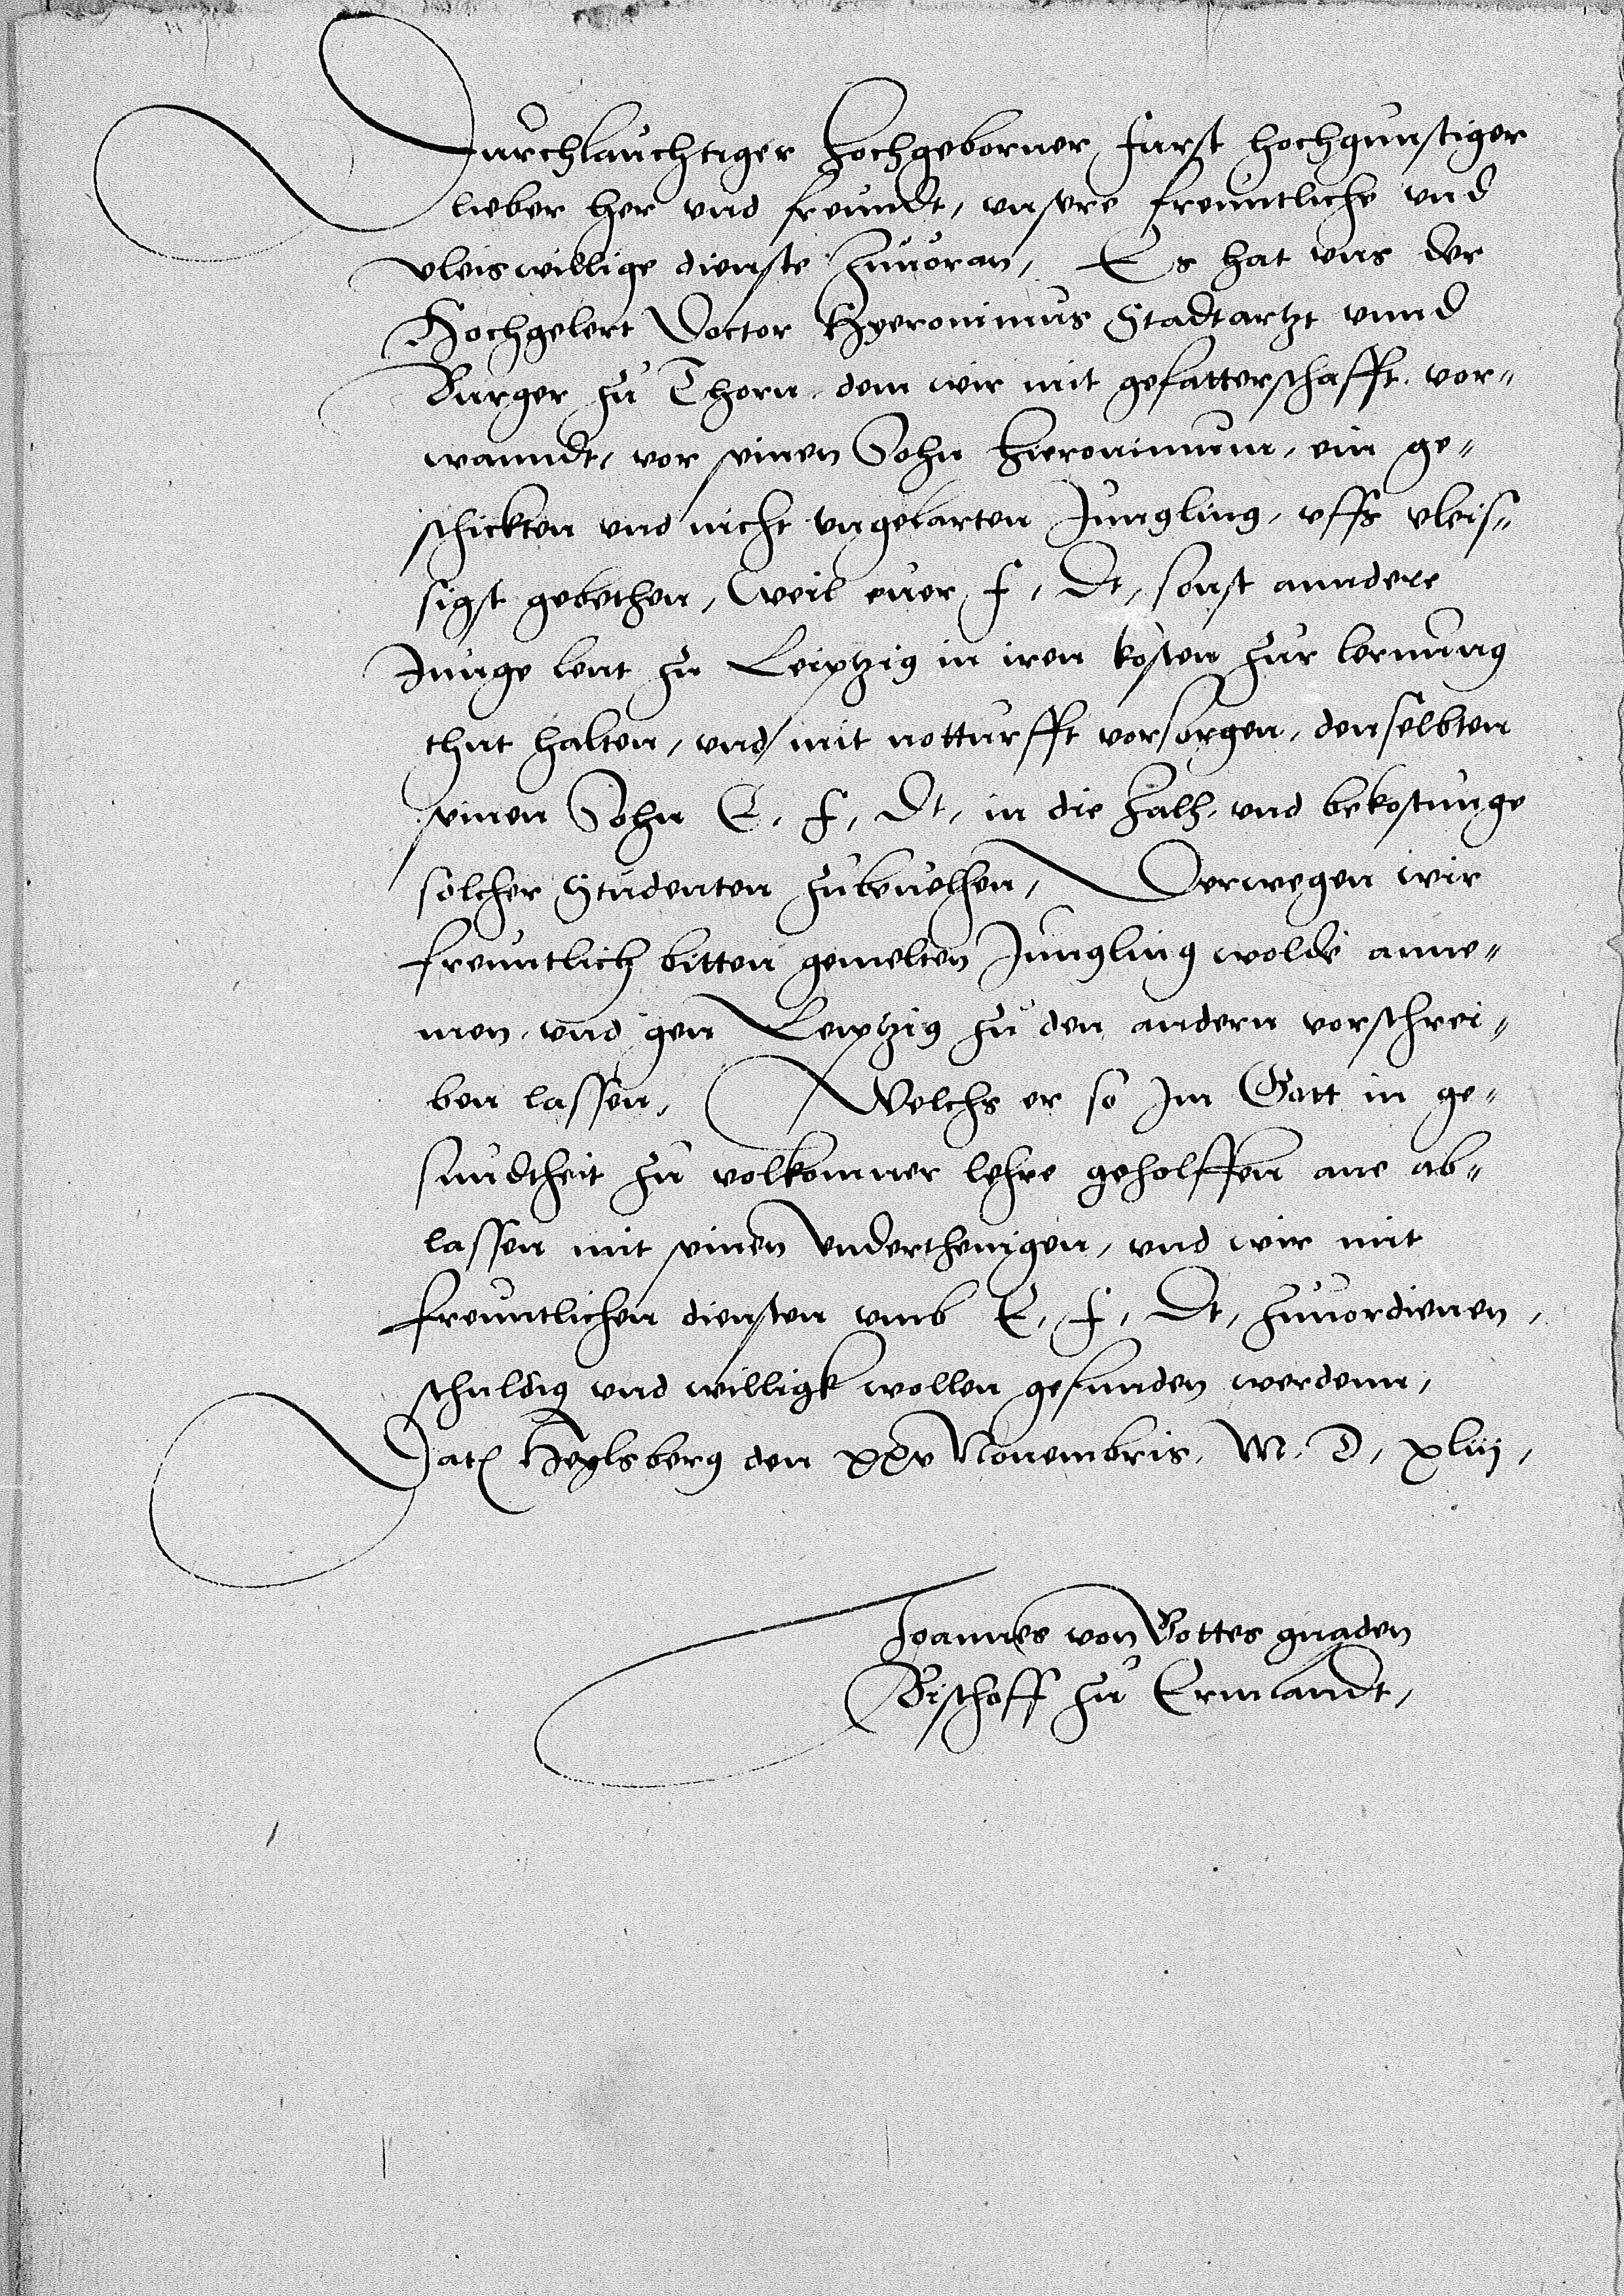 Durchlauchtiger Hochgeborner furst hochgunstiger
lieber her vnd freundt, vnsere freuntliche vnd
vleiswillige dienste zuuoran, Es hat vns der
Hochgelert Doctor Hyeronimus Stadtartzt vnnd
Burger zu Thorn dem wir mit gefatterschafft vor„
wanndt, vor seinen Sohn Hieronimum, ein ge„
schickten vnd nicht vngelarten Jungling, vffs vleis„
sigst gebethen, Weil euer, f, Dt, sonst anndere
Junge leut zu Leiptzig in iren kosten zur lernung
thut halten, vnd mit notturfft vorsorgen, denselbten
seinen Sohn E, f, Dt, in die zalh, vnd bekostunge
solcher Studenten zubeuelhen, Derwegen wir
freuntlich bitten gemelten Jungling wolde anne„
men, vnd gen Leiptzig zu den andern vorschrei„
ben lassen, Welchs er so Im Gott in ge„
sundtheit zu volkomner lehre geholffen ane ab„
lassen mit seinen vnderthenigen, vnd wir mit
freuntlichen diensten vmb E, f, Dt, zuuordienen,
schuldig vnd willigk wollen gefunden werdenn,
Dat Heylsberg den xxv Nouembris, M, D, xliij,
Joannes von Gottes gnaden
Bischoff zu Ermlandt,